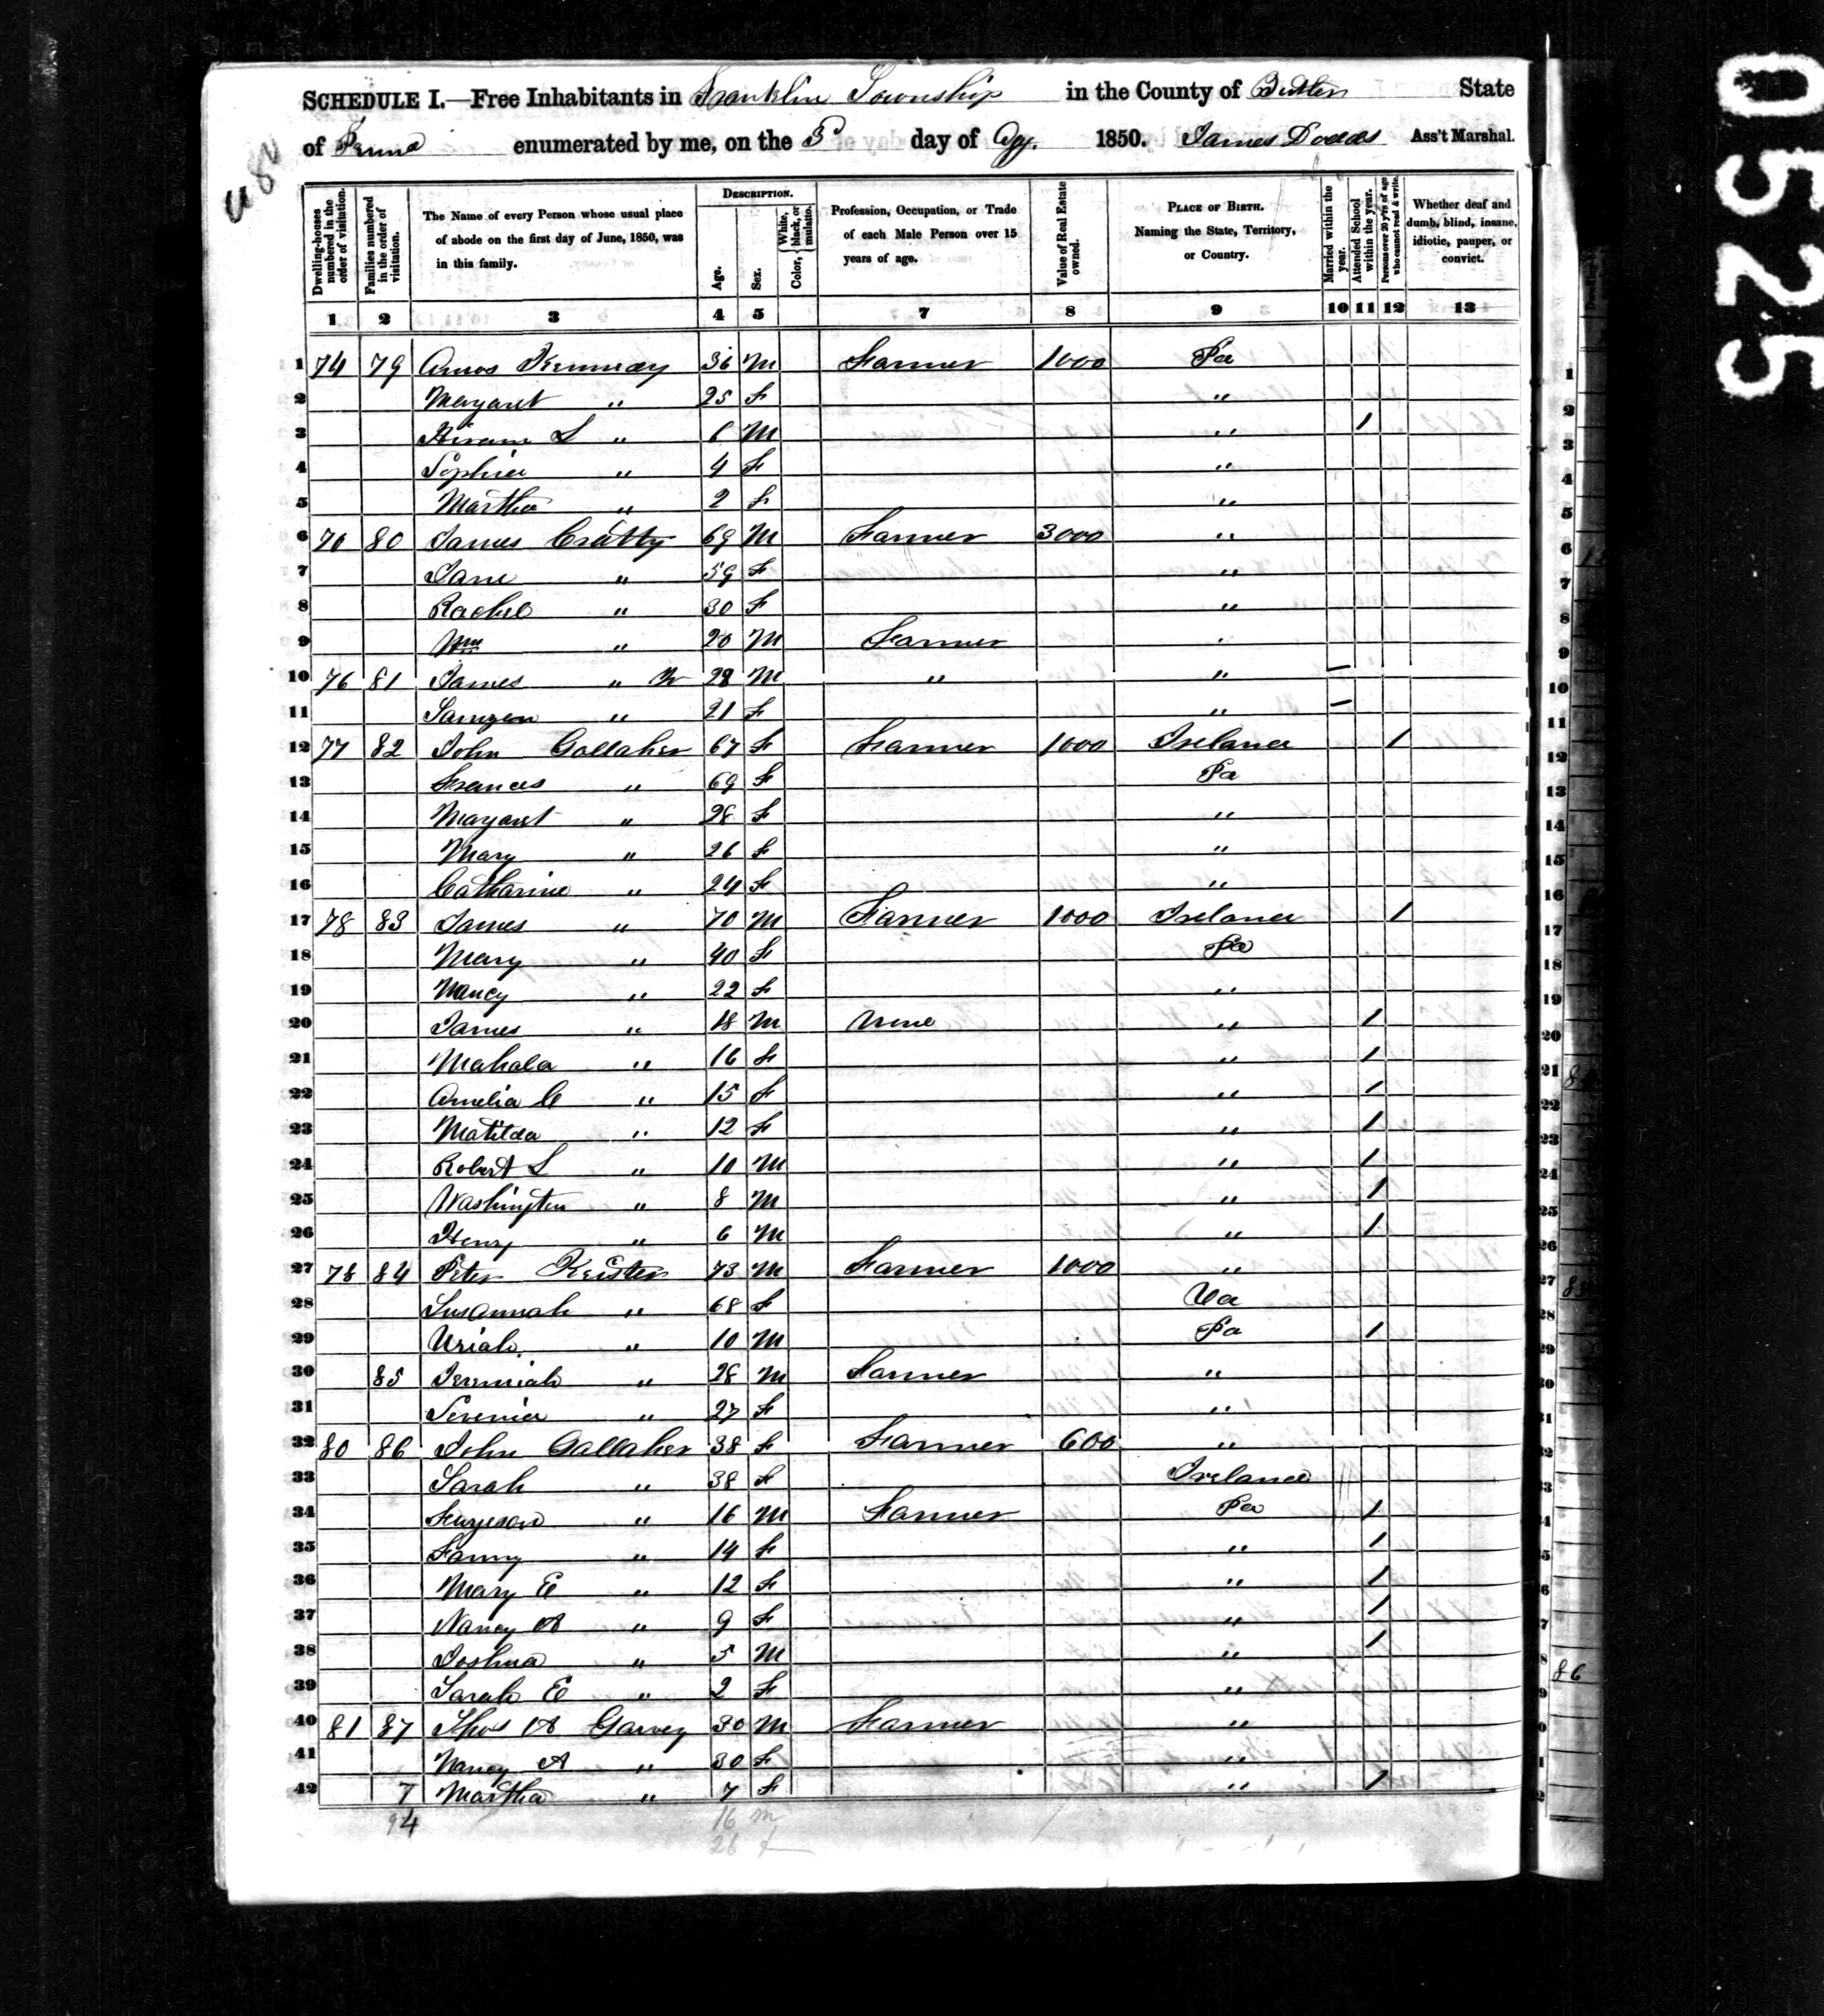 0525
SCHEDULE I.—Free Inhabitants in Franklin Township in the County of Butler State
of Penna enumerated by me, on the 3d day of Agt. 1850. James Dodds Ass't Marshal.
Dwelling-houses numbered in the order of visitation.
Families numbered in the order of visitation.
The Name of every Person whose usual place of abode on the first day of June, 1850, was in this family.
DESCRIPTION.
Age.
Sex.
Color, White, black, or mulatto.
Profession, Occupation, or Trade of each Male Person over 15 years of age.
Value of Real Estate owned.
PLACE OF BIRTH. Naming the State, Territory, or Country.
Married within the year.
Attended School within the year.
Persons over 20 y'rs of age who cannot read & write.
Whether deaf and dumb, blind, insane, idiotic, pauper, or convict.
1 2 3 4 5 7 8 9 10 11 12 13
1 74 79 Amos Kennedy 36 M Farmer 1000 Pa
2 Margaret " 25 F "
3 Hiram L " 6 M " /
4 Sophia " 4 F "
5 Martha " 2 F "
6 70 80 James Cratty 69 M Farmer 3000 "
7 Jane " 59 F "
8 Rachel " 30 F "
9 Wm " 20 M Farmer "
10 76 81 James " 28 M " " /
11 " 21 F " /
12 77 82 John Gallaher 67 F Farmer 1000 Ireland /
13 Frances " 69 F Pa
14 Margaret " 28 F "
15 Mary " 26 F "
16 Catharine " 24 F "
17 78 83 James " 70 M Farmer 1000 Ireland /
18 Mary " 40 F Pa
19 Nancy " 22 F "
20 James " 18 M None " /
21 Mahala " 16 F " /
22 Amelia C " 15 F " /
23 Matilda " 12 F " /
24 Robert L " 10 M " /
25 Washington " 8 M " /
26 Henry " 6 M " /
27 78 84 Peter Keister 73 M Farmer 1000 "
28 Susannah " 68 F Va
29 Uriah " 10 M Pa /
30 85 Jeremiah " 28 M Farmer "
31 " 27 F "
32 80 86 John Gallaher 38 F Farmer 600 "
33 Sarah " 38 F Ireland
34 Furgeson " 16 M Farmer Pa /
35 Fanny " 14 F " /
36 Mary E " 12 F " /
37 Nancy A " 9 F " /
38 Joshua " 5 M " /
39 Sarah E " 2 F "
40 81 87 Thos A Garvey 30 M Farmer "
41 Nancy A " 30 F "
42 7 Martha " 7 F " /
94 16 m
26 f